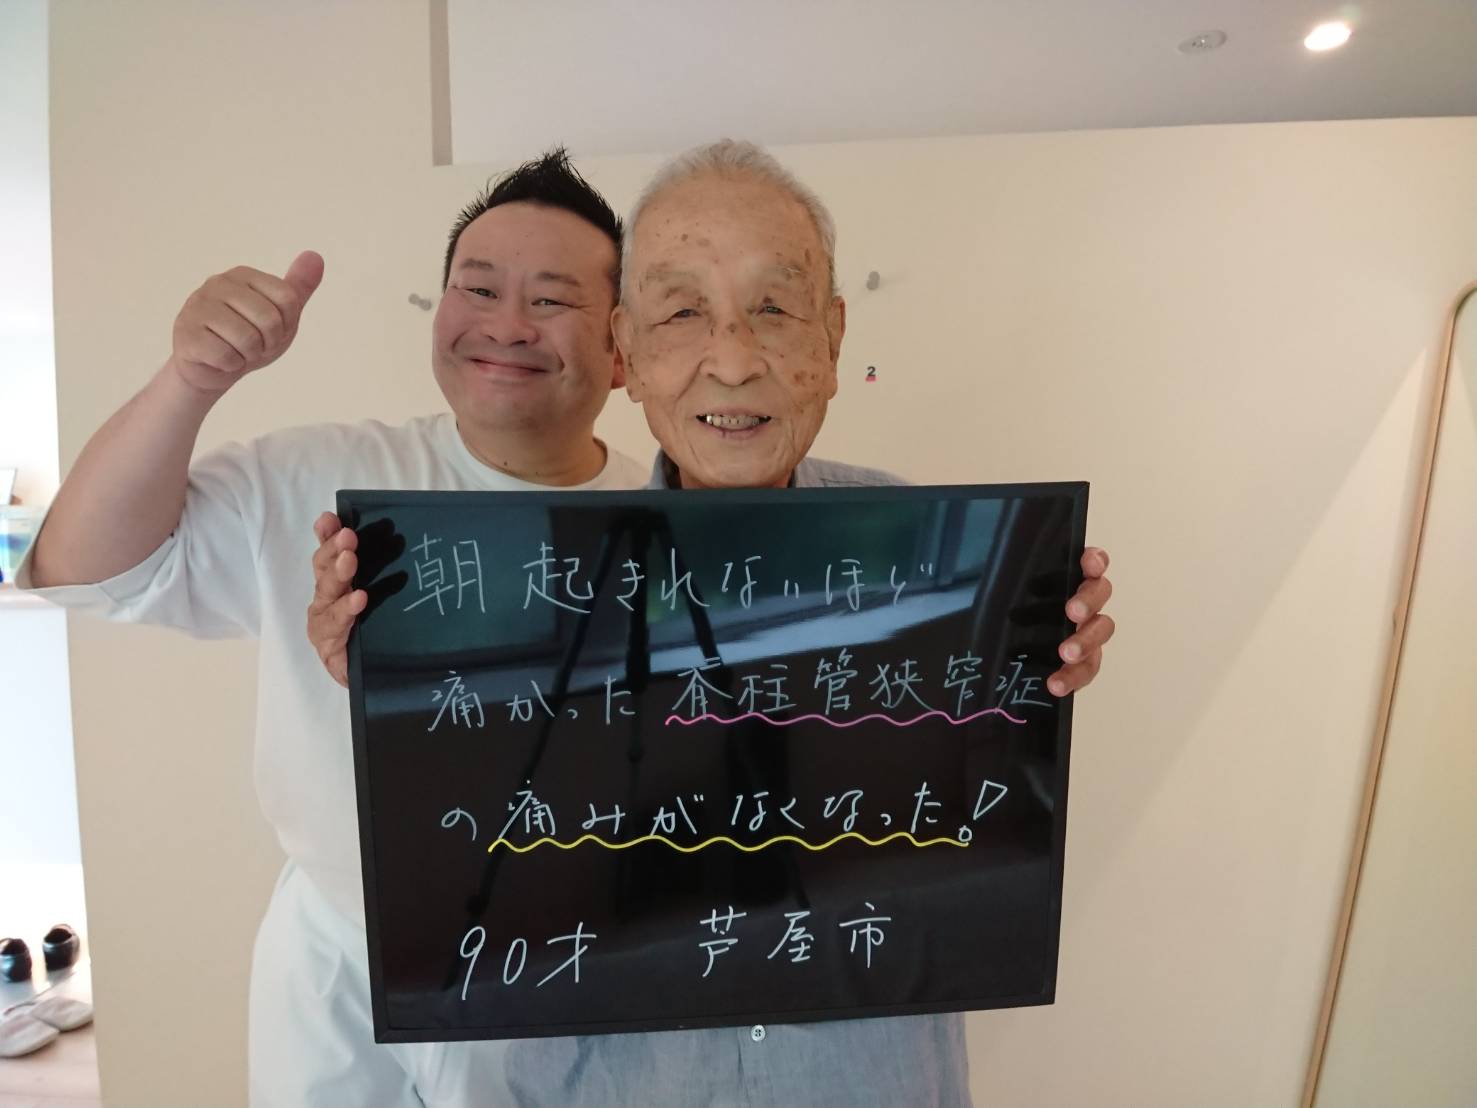 朝起きれないほど
痛かった脊柱管狭窄症
の痛みがなくなった!
90才 芦屋市
2